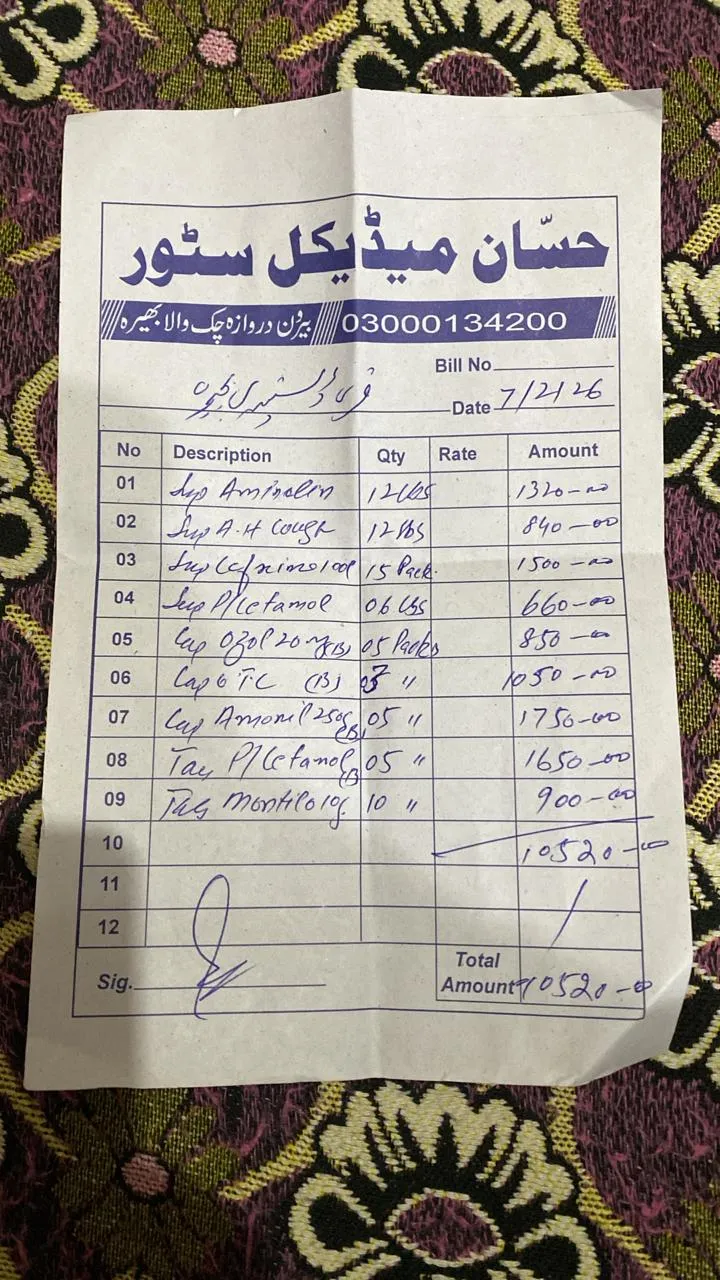 حسّان میڈیکل سٹور
بیرون دروازہ چک والا بھیرہ 03000134200
Bill No
ڈسپنسری بھیرہ
Date 7/2/26
No Description Qty Rate Amount
01 Syp Aminolin 12 1320-00
02 Syp A.H Cough 12 840-00
03 Syp 15 Pack 1500-00
04 Syp P/Cetamol 06 660-00
05 Cap Ozol 20 mg (B) 05 Packs 850-00
06 Cap OTC (B) " 1050-00
07 Cap Amoxil 250 (B) 05 " 1750-00
08 Tab P/Cetamol (B) 05 " 1650-00
09 Tab 10 " 900-00
10 10520-00
11 /
12
Sig.
Total Amount 10520-00